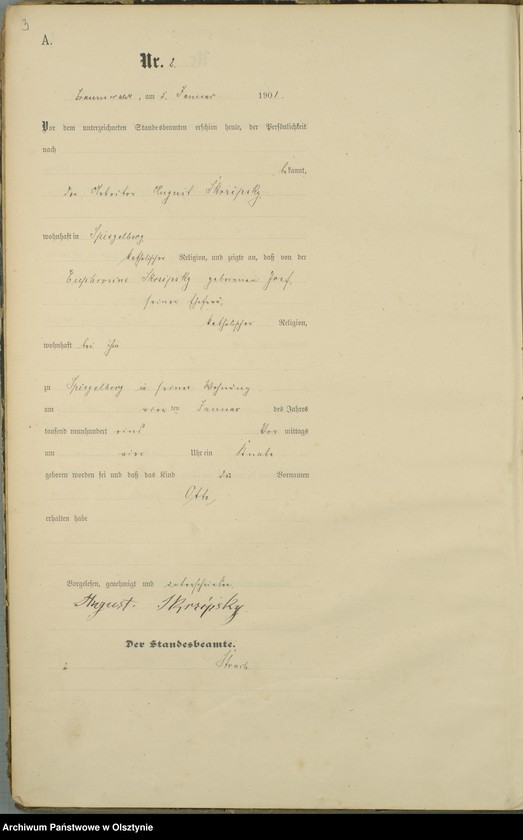 3
A.
Nr. 2.
am 5. Januar 1901.
Vor dem unterzeichneten Standesbeamten erschien heute, der Persönlichkeit
nach
bekannt,
der Arbeiter August Skorzipsky
wohnhaft in Spiegelberg
katholischer Religion, und zeigte an, daß von der
Euphrosine Skorzipsky geborenen
seiner Ehefrau,
katholischer Religion,
wohnhaft bei ihm
zu Spiegelberg in seiner Wohnung
am den Januar des Jahres
tausend neunhundert eins Vor mittags
um vier Uhr ein Knabe
geboren worden sei und daß das Kind den Vornamen
Otto
erhalten habe
Vorgelesen, genehmigt und unterschrieben.
August. Skorzipsky
Der Standesbeamte.
Archiwum Państwowe w Olsztynie